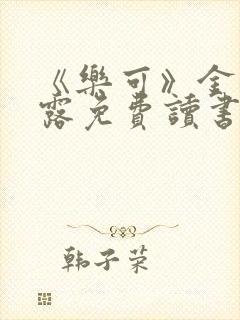 《樂可》金
露免費讀書
韩子荣